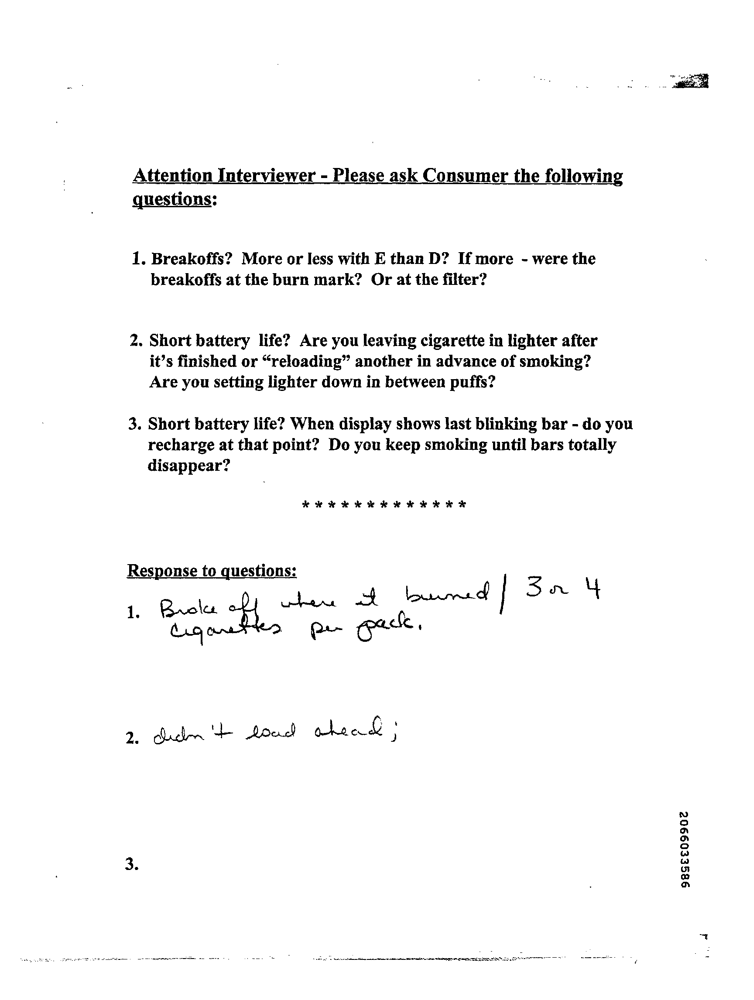 Attention Interviewer - Please ask Consumer the following
questions:
1. Breakoffs? More or less with E than D? If more - were the
breakoffs at the burn mark? Or at the filter?
2. Short battery life? Are you leaving cigarette in lighter after
it's finished or “reloading” another in advance of smoking?
Are you setting lighter down in between puffs?
3. Short battery life? When display shows last blinking bar - do you
recharge at that point? Do you keep smoking until bars totally
disappear?
* * * * * * * * * * * * *
Response to questions:
1. Broke off where it burned / 3 or 4
cigarettes per pack.
2. didn't load ahead;
3.
2066033586